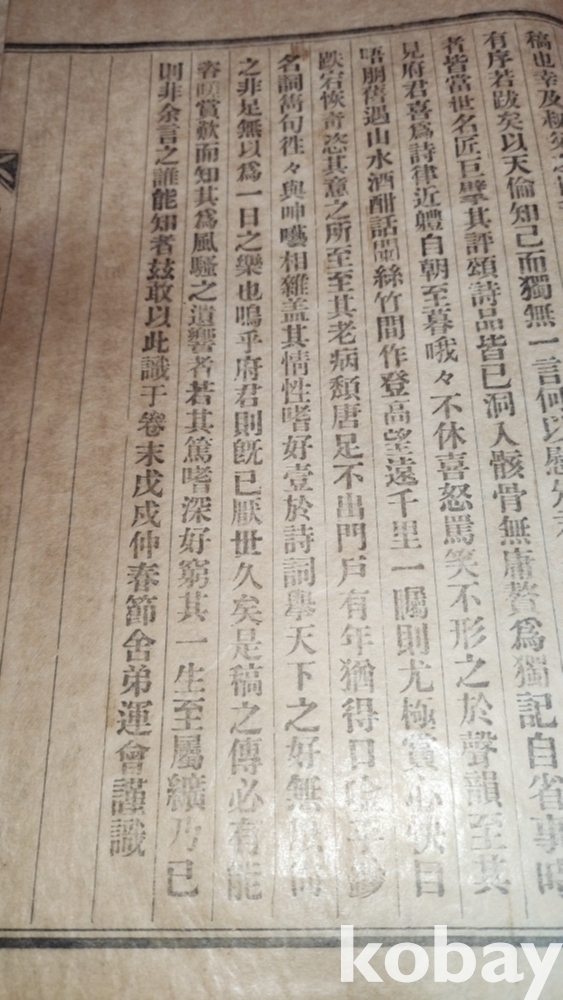 稿也幸及
有序若跋矣以天倫知己而獨無一言何以慰
者皆當世名匠巨擘其評頌詩品皆已洞入骸骨無庸贅爲獨記自省事時
見府君喜爲詩律近體自朝至暮哦々不休喜怒罵笑不形之於聲韻至其
唔朋舊遇山水酒酣話闌絲竹間作登高望遠千里一矚則尤極賞心快目
跌宕恢奇恣其意之所至至其老病頹唐足不出門戶有年猶得口
名詞雋句徃々與呻囈相雜盖其情性嗜好壹於詩詞擧天下之好無
之非足無以爲一日之樂也嗚乎府君則旣已厭世久矣是稿之傳必有能
賞歎而知其爲風騷之遺響者若其篤嗜深好窮其一生至屬纊乃已
則非余言之誰能知者玆敢以此識于卷末戊戌仲春節舍弟運會謹識
kobay